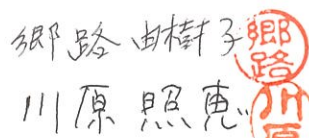 郷路 由樹子 郷路
川原 照恵 川原